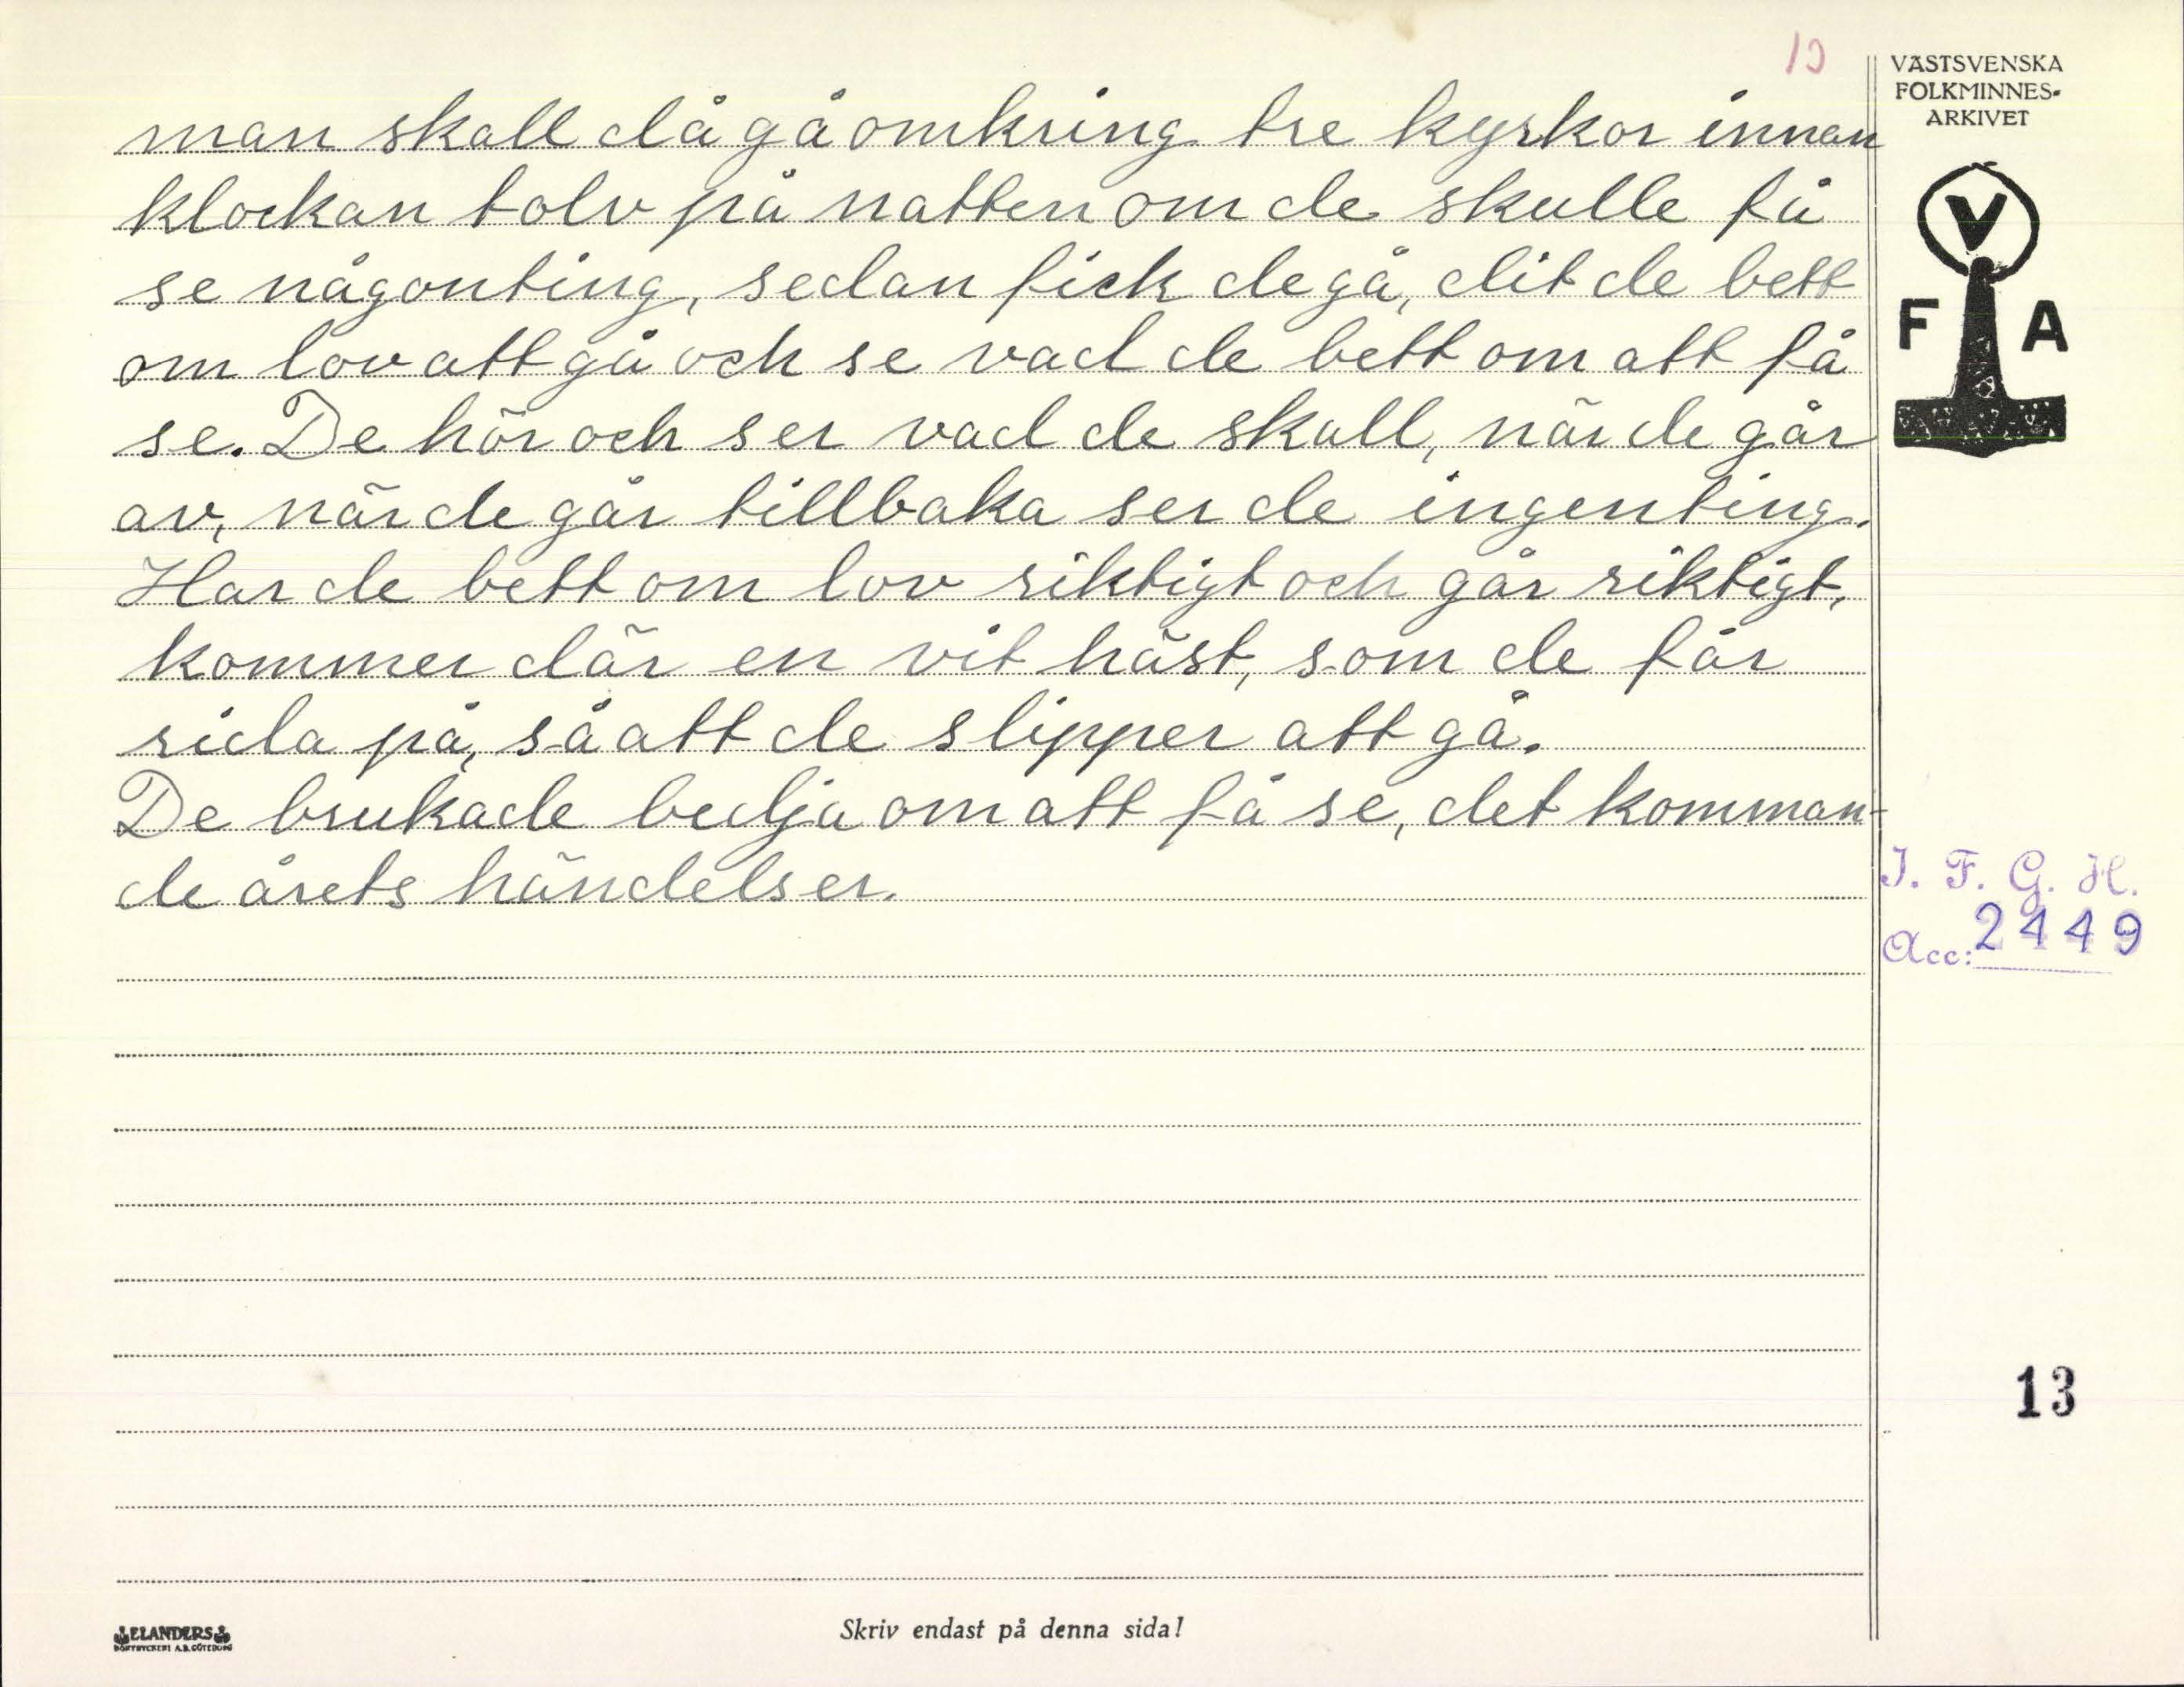 10
VÄSTSVENSKA
FOLKMINNES-
ARKIVET
V
F A
man skall då gå omkring tre kyrkor innan
klockan tolv på natten om de skulle få
se någonting, sedan fick de gå, dit de bett
om lov att gå och se vad de bett om att få
se. De hör och ser vad de skall, när de går
av, när de går tillbaka ser de ingenting.
Har de bett om lov riktigt och går riktigt,
kommer där en vit häst, som de får
rida på, så att de slipper att gå.
De brukade bedja om att få se, det komman-
de årets händelser.
I. F. G. H.
Acc: 2449
13
ELANDERS
BOKTRYCKERI A.B. GÖTEBORG
Skriv endast på denna sida!